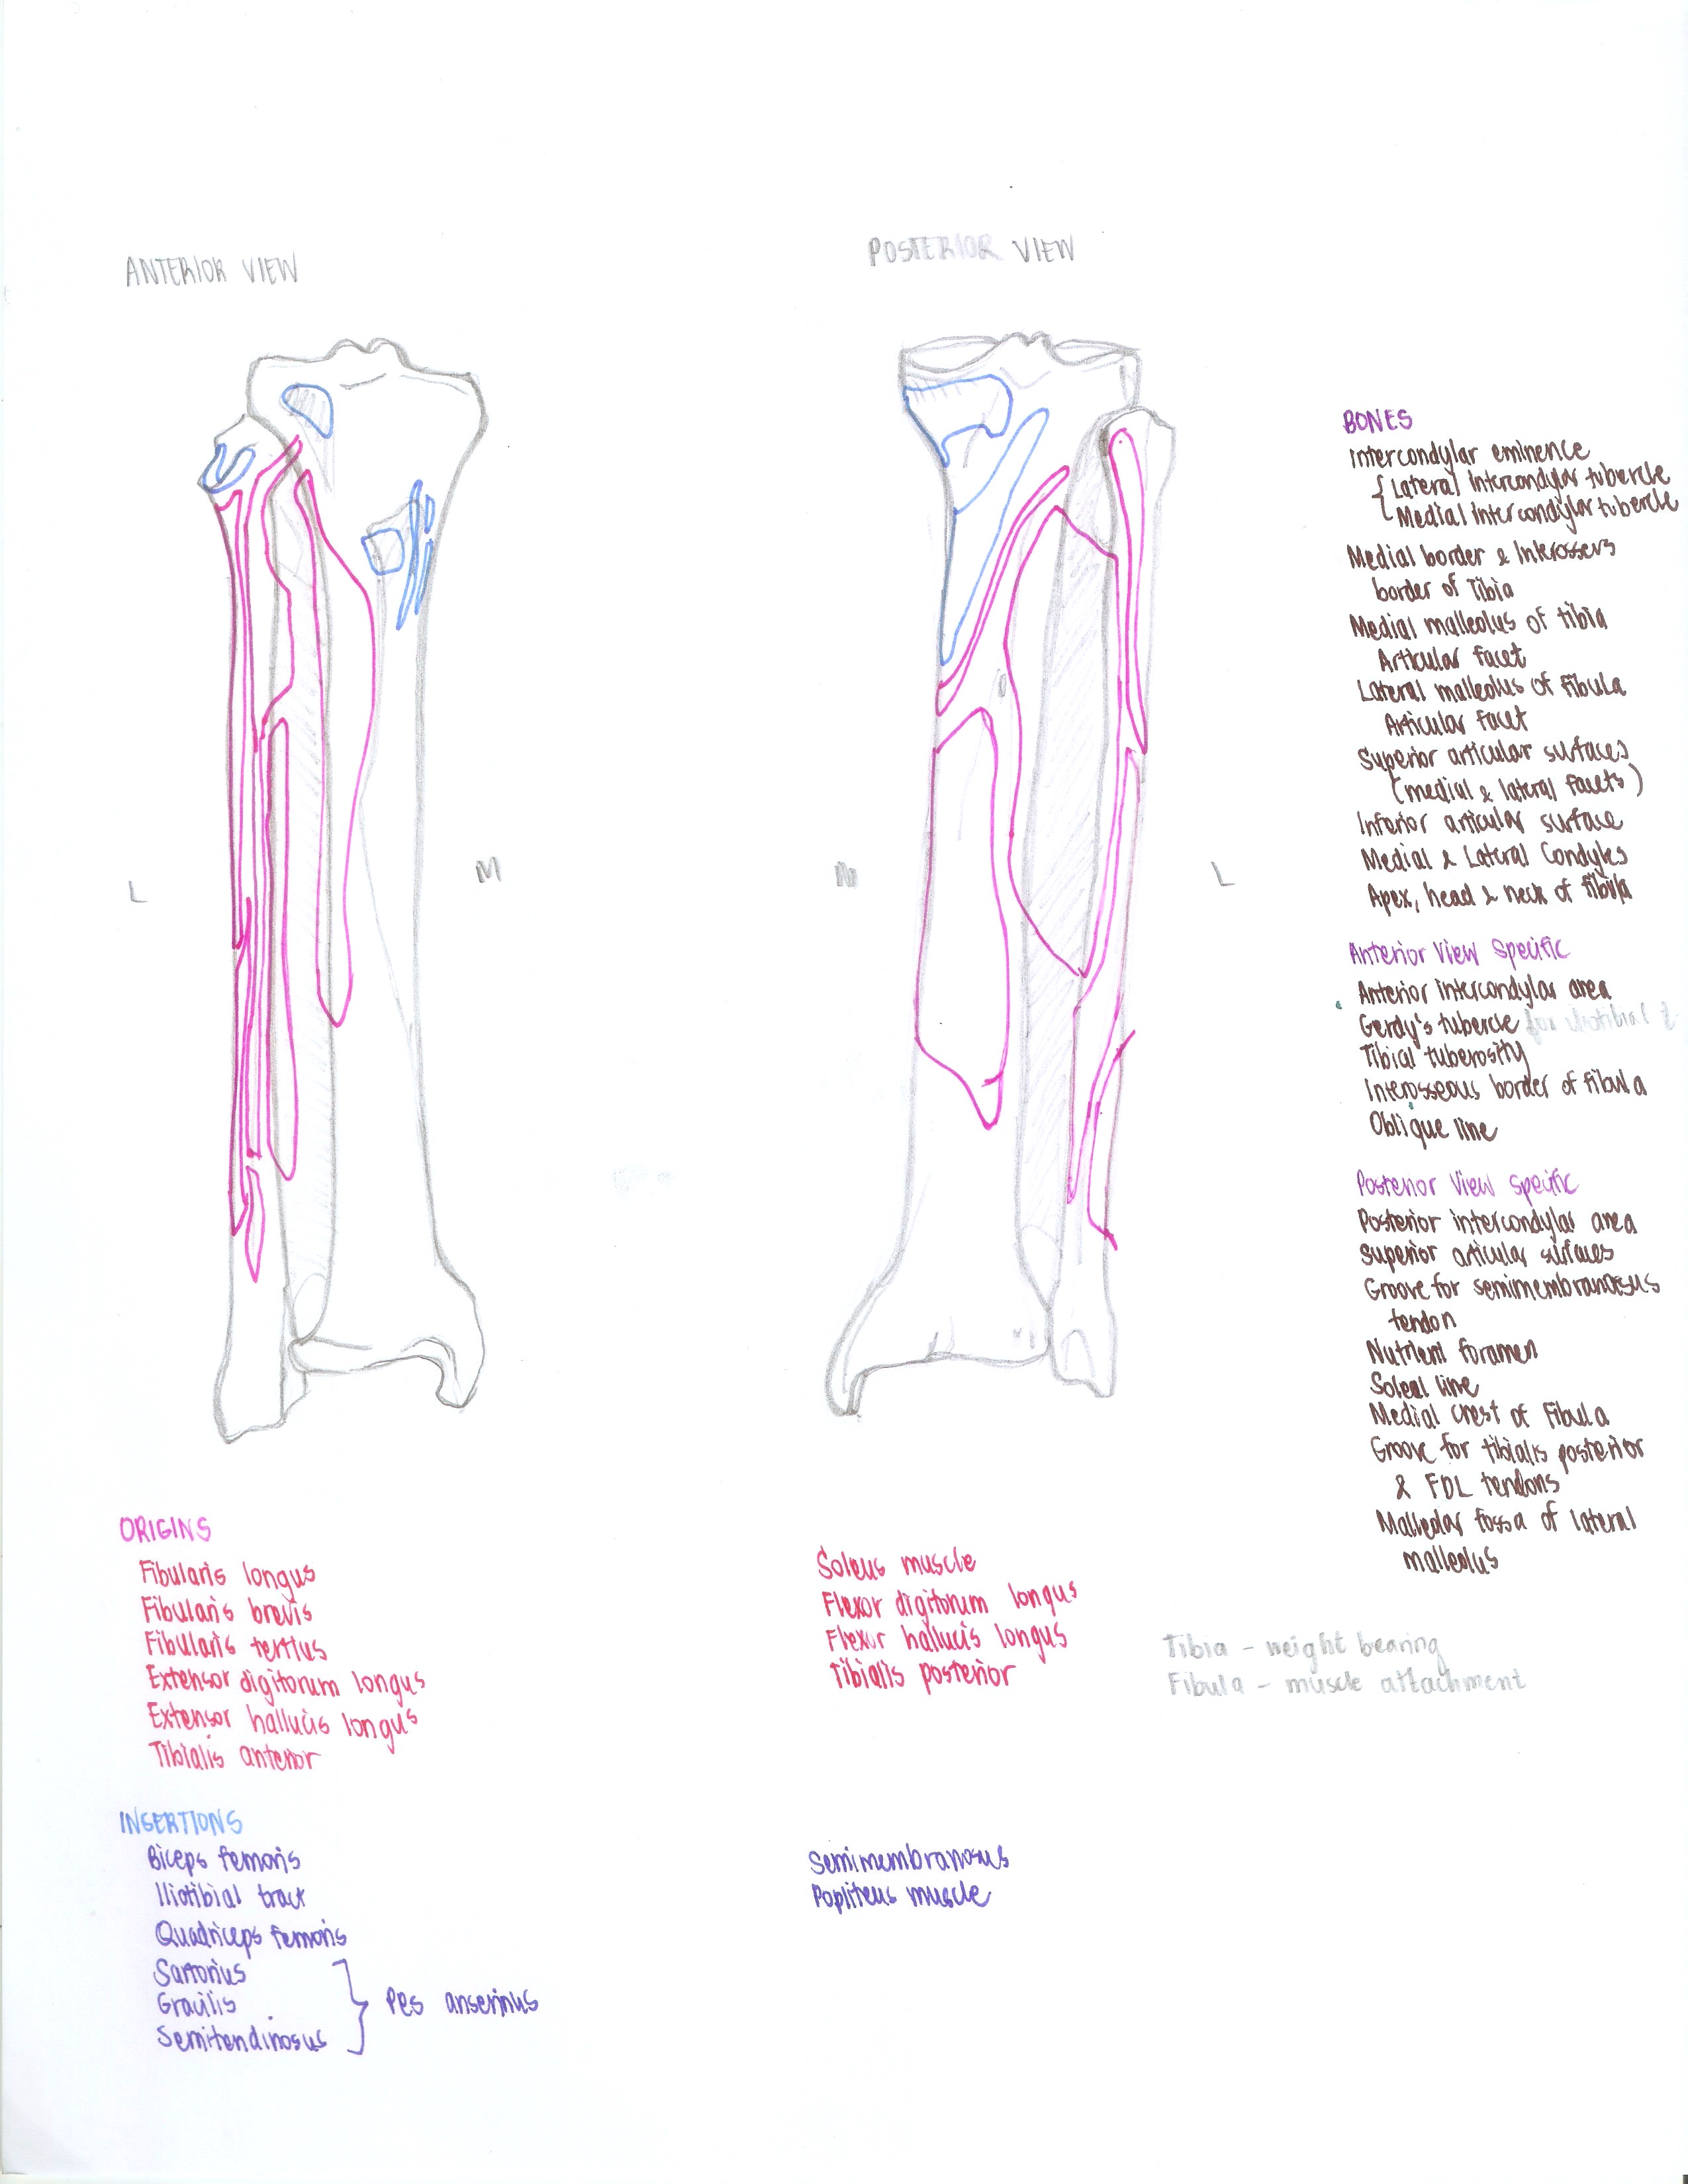 ANTERIOR VIEW
POSTERIOR VIEW
L
M
M
L
BONES
Intercondylar eminence
Lateral intercondylar tubercle
Medial intercondylar tubercle
Medial border & Interosseus
border of Tibia
Medial malleolus of tibia
Articular facet
Lateral malleolus of fibula
Articular facet
Superior articular surfaces
(medial & lateral facets)
Inferior articular surface
Medial & Lateral Condyles
Apex, head & neck of fibula
Anterior View Specific
Anterior intercondylar area
Gerdy's tubercle for iliotibial
Tibial tuberosity
Interosseous border of fibula
Oblique line
Posterior View Specific
Posterior intercondylar area
Superior articular surfaces
Groove for semimembranosus
tendon
Nutrient foramen
Soleal line
Medial crest of Fibula
Groove for tibialis posterior
& FDL tendons
Malleolar fossa of lateral
malleolus
ORIGINS
Fibularis longus
Fibularis brevis
Fibularis tertius
Extensor digitorum longus
Extensor hallucis longus
Tibialis anterior
Soleus muscle
Flexor digitorum longus
Flexor hallucis longus
Tibialis posterior
Tibia - weight bearing
Fibula - muscle attachment
INSERTIONS
Biceps femoris
Iliotibial tract
Quadriceps femoris
Sartorius
Gracilis
Semitendinosus
Pes anserinus
Semimembranosus
Popliteus muscle